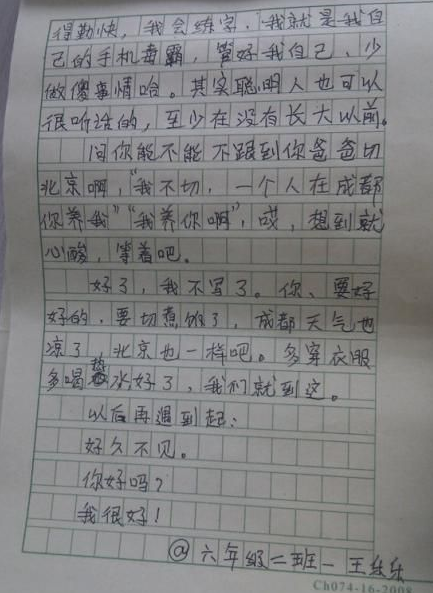 得勤快，我会练字．我就是我自
己的手机毒霸，管好我自己、少
做傻事情哈。其实聪明人也可以
很听话的，至少在没有长大以前。
问你能不能不跟到你爸爸切
北京啊，“我不切，一个人在成都
你养我”“我养你啊”，哎，想到就
心酸，等着吧。
好了，我不写了。你、要好
好的．要切煮的了，成都天气也
凉了 北京也一样吧。多穿衣服
多喝热水好了，我们就到这。
以后再遇到起：
好久不见。
你好吗？
我很好！
@六年级二班一王乐乐
Ch074-16-2008